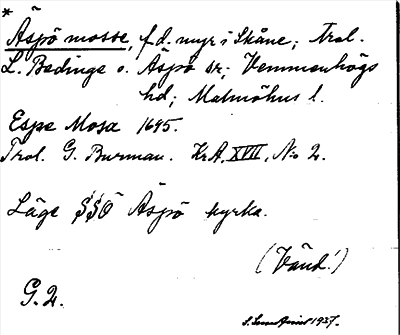 *
Äspö mosse, f.d. myr i Skåne; Trol.
L. Bedinge o. Äspö sr; Vemmenhögs
hd; Malmöhus l.
Espe Mosa 1695.
Trol. G. Burman. KrA, XVII, N:o 2.
Läge SSÖ Äspö kyrka.
(Vänd!)
G. 2.
1927.